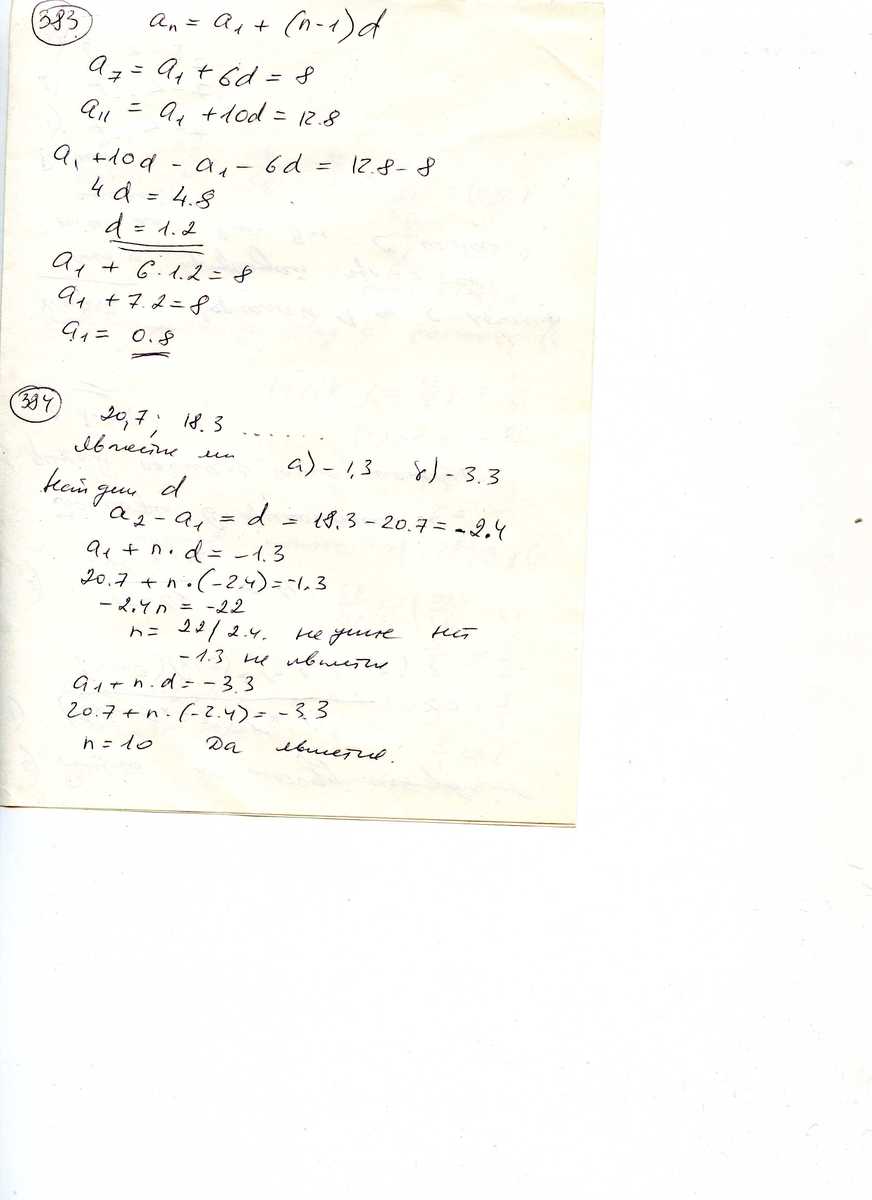 383 aₙ = a₁ + (n-1)d
a₇ = a₁ + 6d = 8
a₁₁ = a₁ + 10d = 12.8
a₁ + 10d - a₁ - 6d = 12.8 - 8
4d = 4.8
d = 1.2
a₁ + 6·1.2 = 8
a₁ + 7.2 = 8
a₁ = 0.8
394
20,7; 18.3 ......
является ли а) -1,3 б) -3.3
Найдем d
a₂ - a₁ = d = 18.3 - 20.7 = -2.4
a₁ + n·d = -1.3
20.7 + n·(-2.4) = -1.3
-2.4n = -22
n = 22/2.4. не
-1.3 не является
a₁ + n·d = -3.3
20.7 + n·(-2.4) = -3.3
n = 10 Да является.